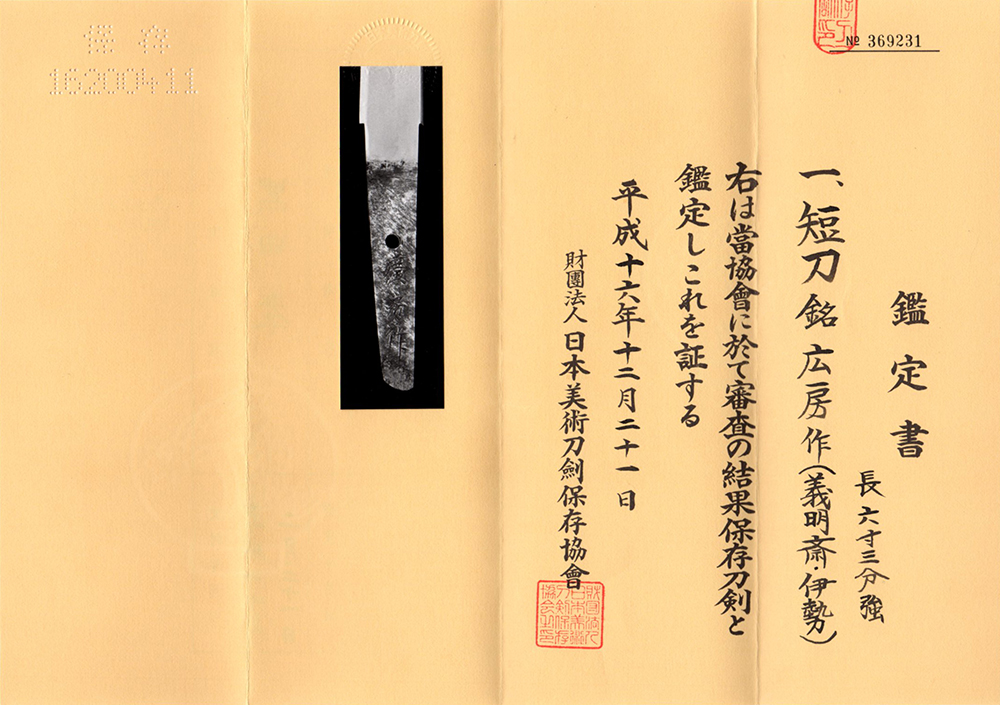 № 369231
鑑定書
長六寸三分強
一、短刀 銘 広房作(義明斎・伊勢)
右は當協會に於て審査の結果保存刀剣と
鑑定しこれを証する
平成十六年十二月二十一日
財團法人 日本美術刀劍保存協會
保存
16200411